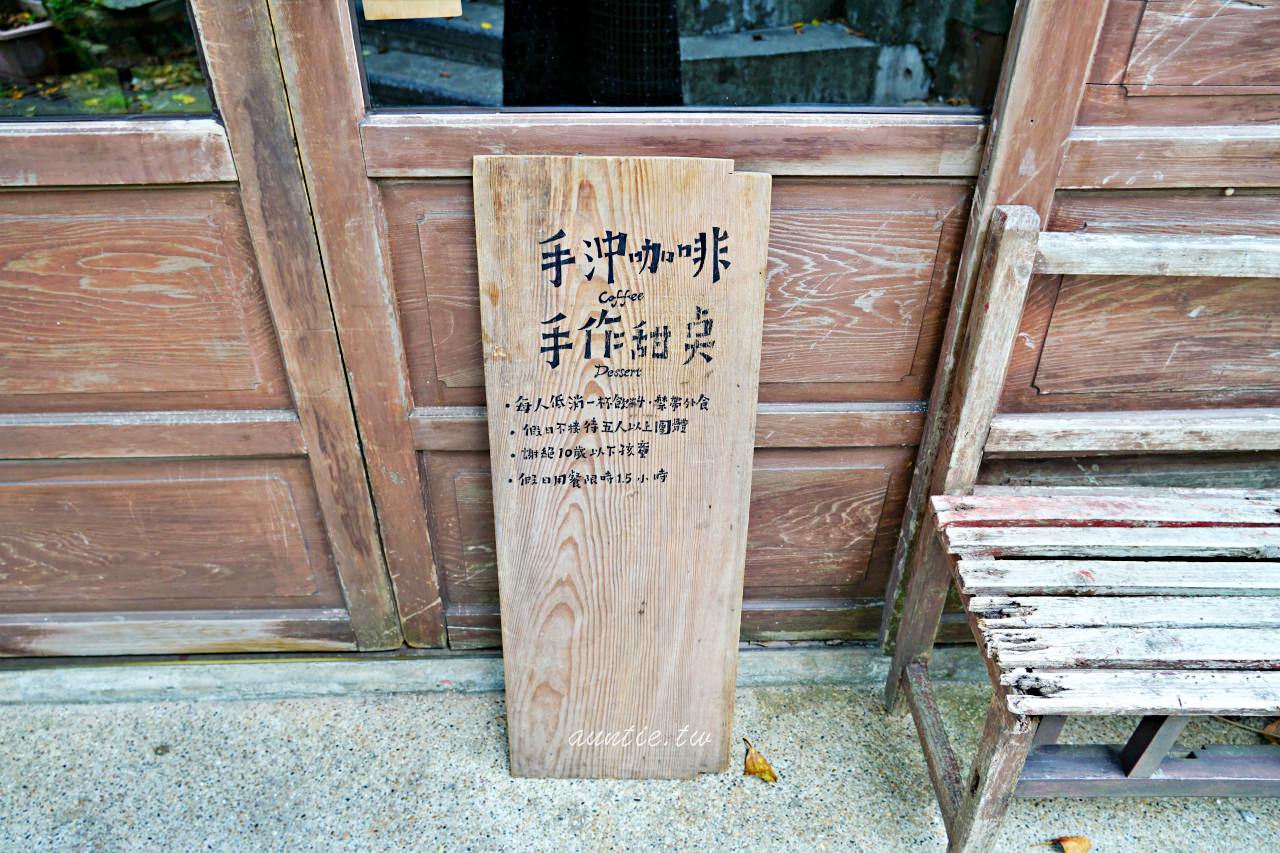 手沖咖啡
Coffee
手作甜奌
Dessert
•每人低消一杯飲料.禁帶外食
•假日不接待五人以上團體
•謝絕10歲以下孩童
•假日用餐限時1.5小時
auntie.tw